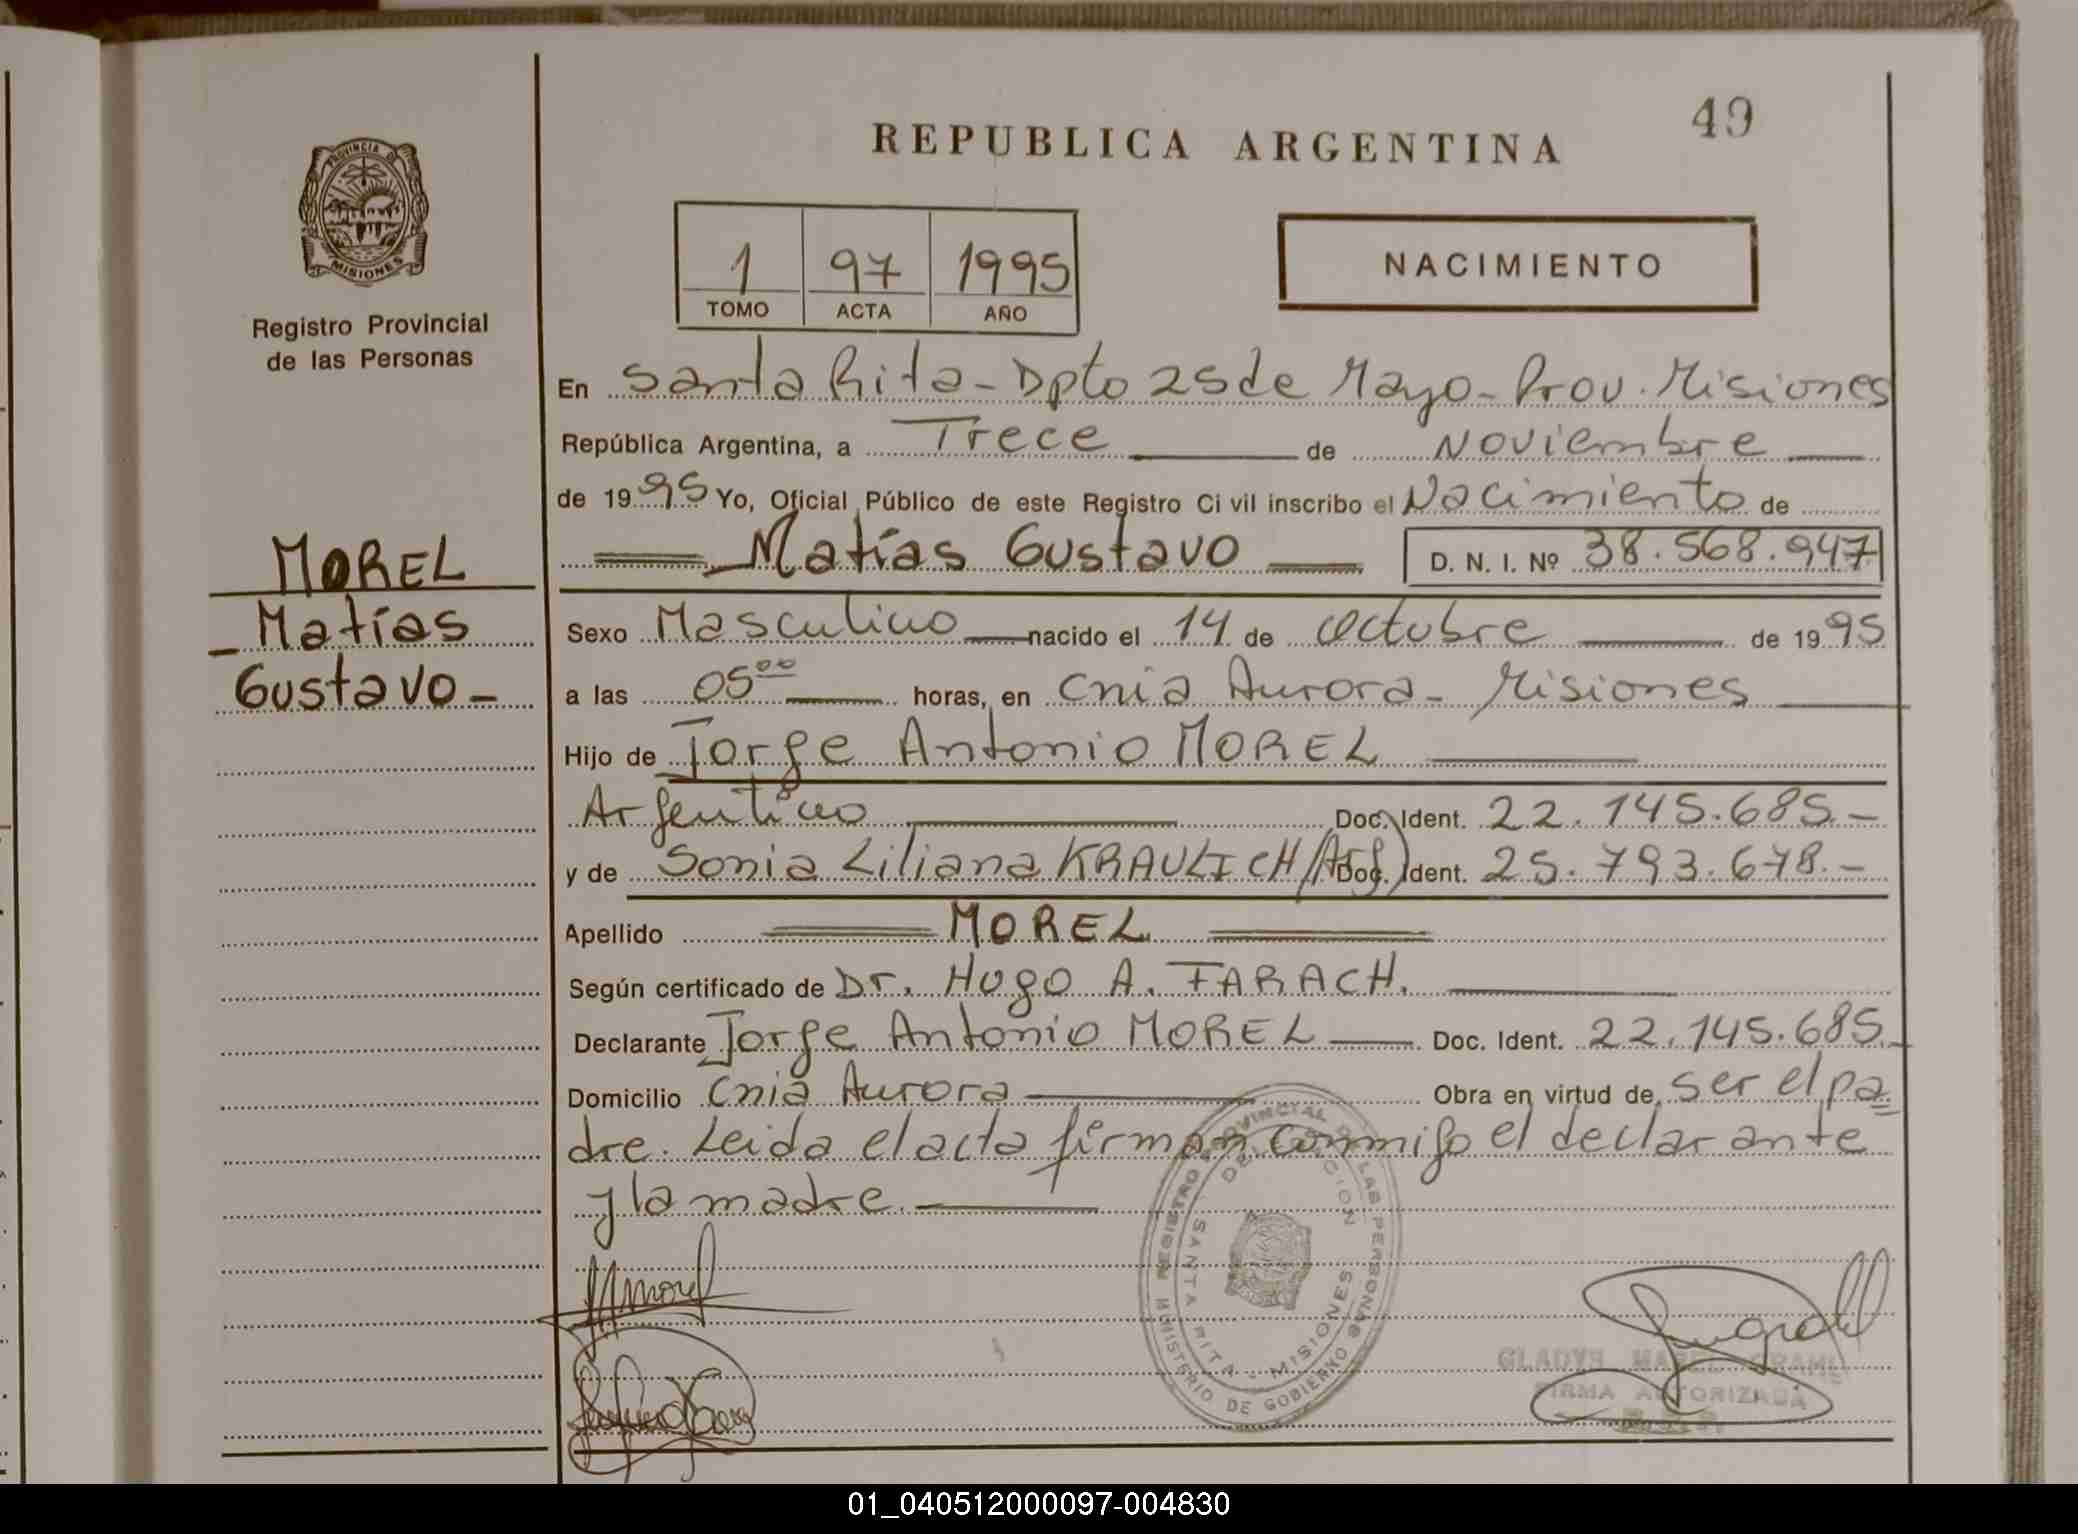 49
REPUBLICA ARGENTINA
PROVINCIA DE
MISIONES
Registro Provincial
de las Personas
1 97 1995
TOMO ACTA AÑO
NACIMIENTO
En Santa Rita - Dpto 25 de Mayo - Prov. Misiones
República Argentina, a Trece de Noviembre
de 1995 Yo, Oficial Público de este Registro Ci vil inscribo el Nacimiento de
Matías Gustavo D. N. I. Nº 38.568.947
MOREL
Matías
Gustavo -
Sexo Masculino nacido el 14 de Octubre de 1995
a las 05⁰⁰ horas, en Cnia Aurora - Misiones
Hijo de Jorge Antonio MOREL
Argentino Doc. Ident. 22.145.685.-
y de Sonia Liliana KRAULICH (Arg.) Doc. Ident. 25.793.678.-
Apellido MOREL
Según certificado de Dr. Hugo A. FARACH.
Declarante Jorge Antonio MOREL Doc. Ident. 22.145.685.-
Domicilio Cnia Aurora Obra en virtud de ser el pa=
dre. Leida el acta firman conmigo el declarante
y la madre.
REGISTRO PROVINCIAL DE LAS PERSONAS
MINISTERIO DE GOBIERNO
DELEGACION
SANTA RITA - MISIONES
Morel
GLADYS MABEL
FIRMA AUTORIZADA
01_040512000097-004830